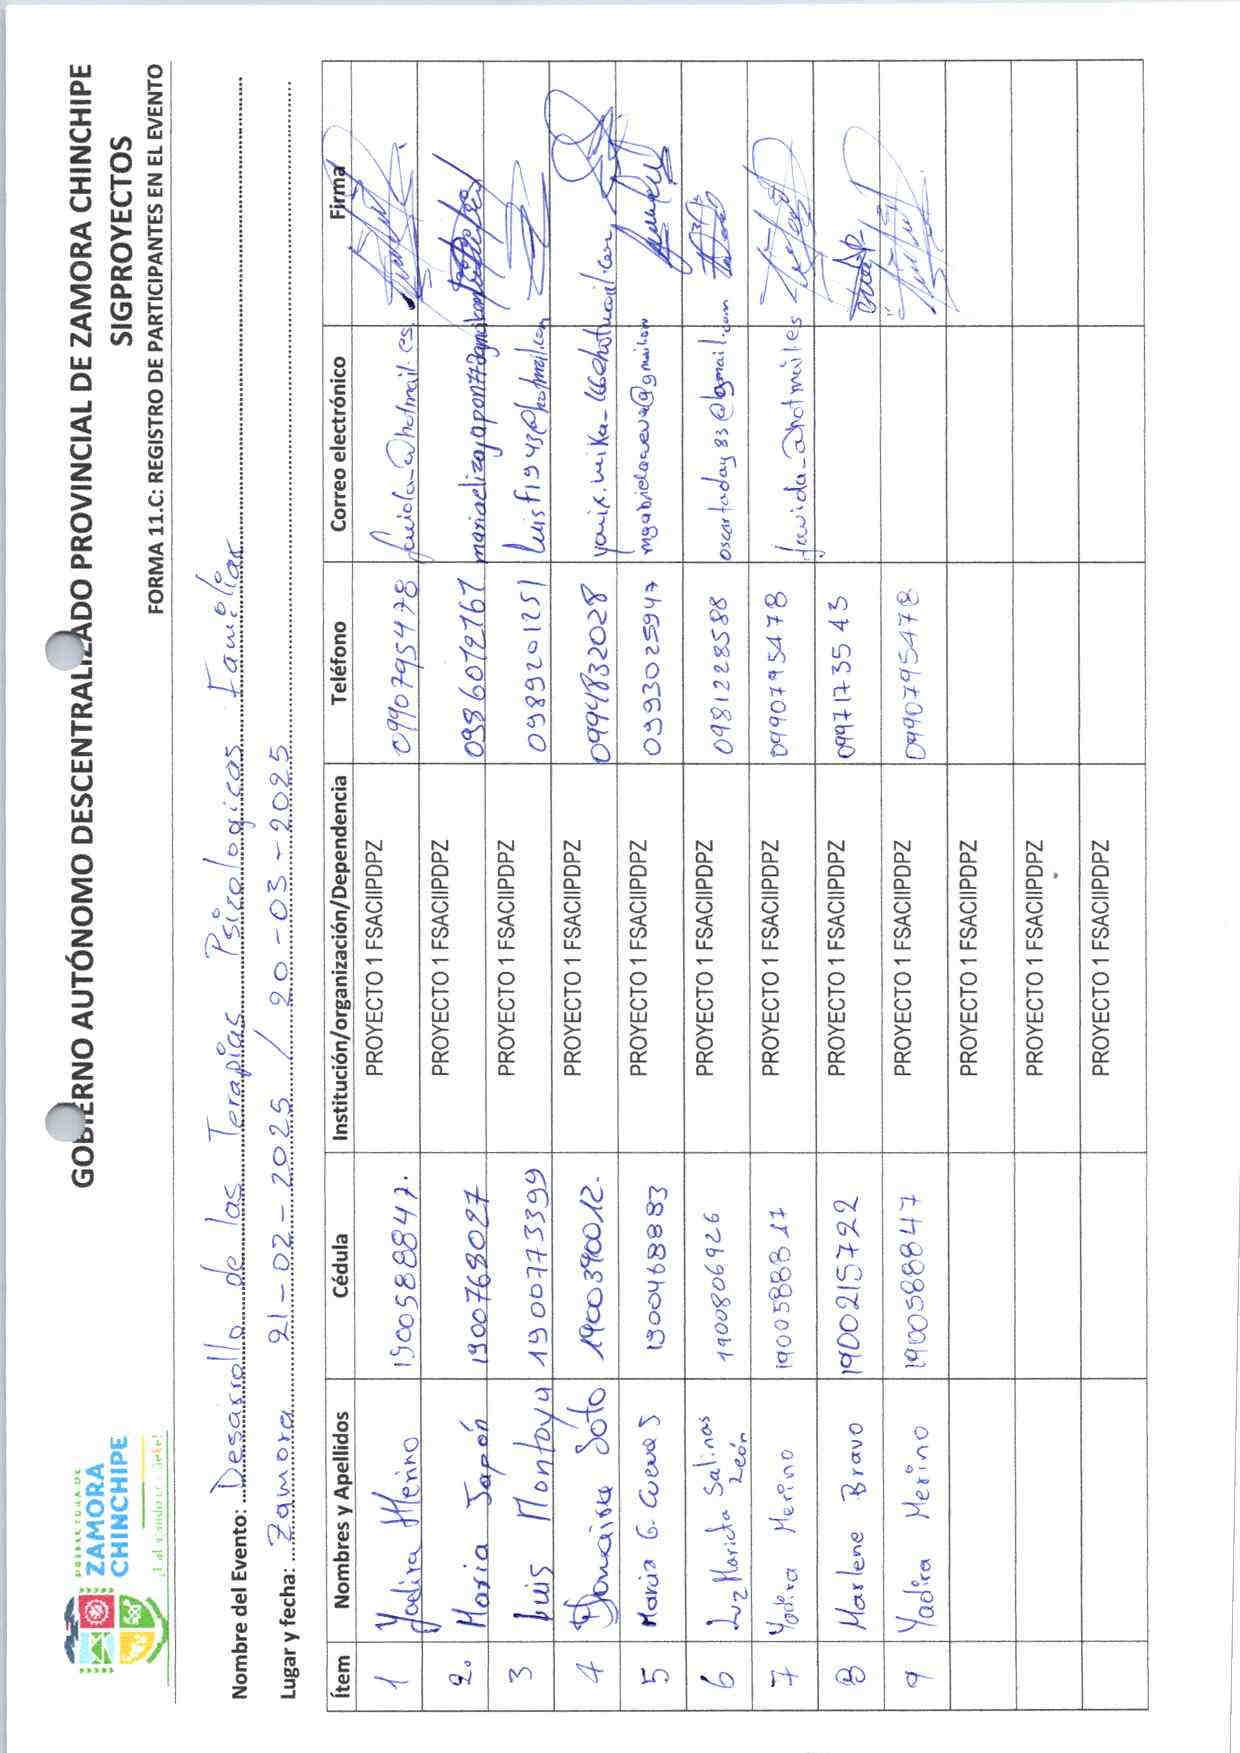 PREFECTURA DE
ZAMORA
CHINCHIPE
GOBIERNO AUTÓNOMO DESCENTRALIZADO PROVINCIAL DE ZAMORA CHINCHIPE
SIGPROYECTOS
FORMA 11.C: REGISTRO DE PARTICIPANTES EN EL EVENTO
Nombre del Evento: Desarrollo de las Terapias Psicologicas Familiar
Lugar y fecha: Zamora 21-02-2025 / 20-03-2025
Ítem Nombres y Apellidos Cédula Institución/organización/Dependencia Teléfono Correo electrónico Firma
1 Yadira Merino 1900588847. PROYECTO 1 FSACIIPDPZ 0990795478
2. Maria Japón 1900768027 PROYECTO 1 FSACIIPDPZ 0986012167
3 Luis Montoya 1900773399 PROYECTO 1 FSACIIPDPZ 0989201251 luisf1943@hotmail.com
4 Soto 1900390012. PROYECTO 1 FSACIIPDPZ 0994832028
5 Maria G. Cueva S 1900468883 PROYECTO 1 FSACIIPDPZ 0993025947 mgabrielacueva@gmail.com
6 Luz Marieta Salinas León 1900806926 PROYECTO 1 FSACIIPDPZ 0981228588 oscartaday83@gmail.com
7 Yadira Merino 1900588817 PROYECTO 1 FSACIIPDPZ 0990795478
8 Marlene Bravo 1900215722 PROYECTO 1 FSACIIPDPZ 099713543
9 Yadira Merino 1900588847 PROYECTO 1 FSACIIPDPZ 0990795478
PROYECTO 1 FSACIIPDPZ
PROYECTO 1 FSACIIPDPZ
PROYECTO 1 FSACIIPDPZ